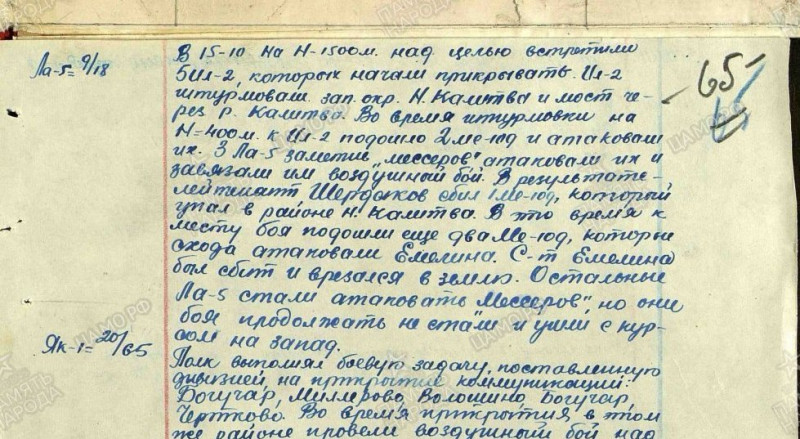 В 15-10 на Н-1500м. над целью встретили
Ла-5= 9/18
5Ил-2, которых начали прикрывать. Ил-2
штурмовали зап. окр. Н. Калитва и мост че-
-65-
рез р. Калитва. Во время штурмовки на
Н=400м. к Ил-2 подошло 2Ме-109 и атаковали
их. 3 Ла-5 заметив „мессеров" атаковали их и
завязали им воздушный бой. В результате-
лейтенант Шердюков сбил 1Ме-109, который
упал в районе Н. Калитва. В это время к
месту боя подошли еще два Ме-109, которые
схода атаковали Емелина. С-т Емелина
был сбит и врезался в землю. Остальные
Ла-5 стали атаковать „Мессеров", но они
боя продолжать не стали и ушли с кур-
сом на запад.
Як-1= 20/65
Полк выполнял боевую задачу, поставленную
дивизией, на прикрытие коммуникаций:
Богучар, Миллерово, Волошино, Богучар,
Чертково. Во время прикрытия в этом
же районе провели воздушный бой над
ПАМЯТЬ НАРОДА
ЦАМО.РФ